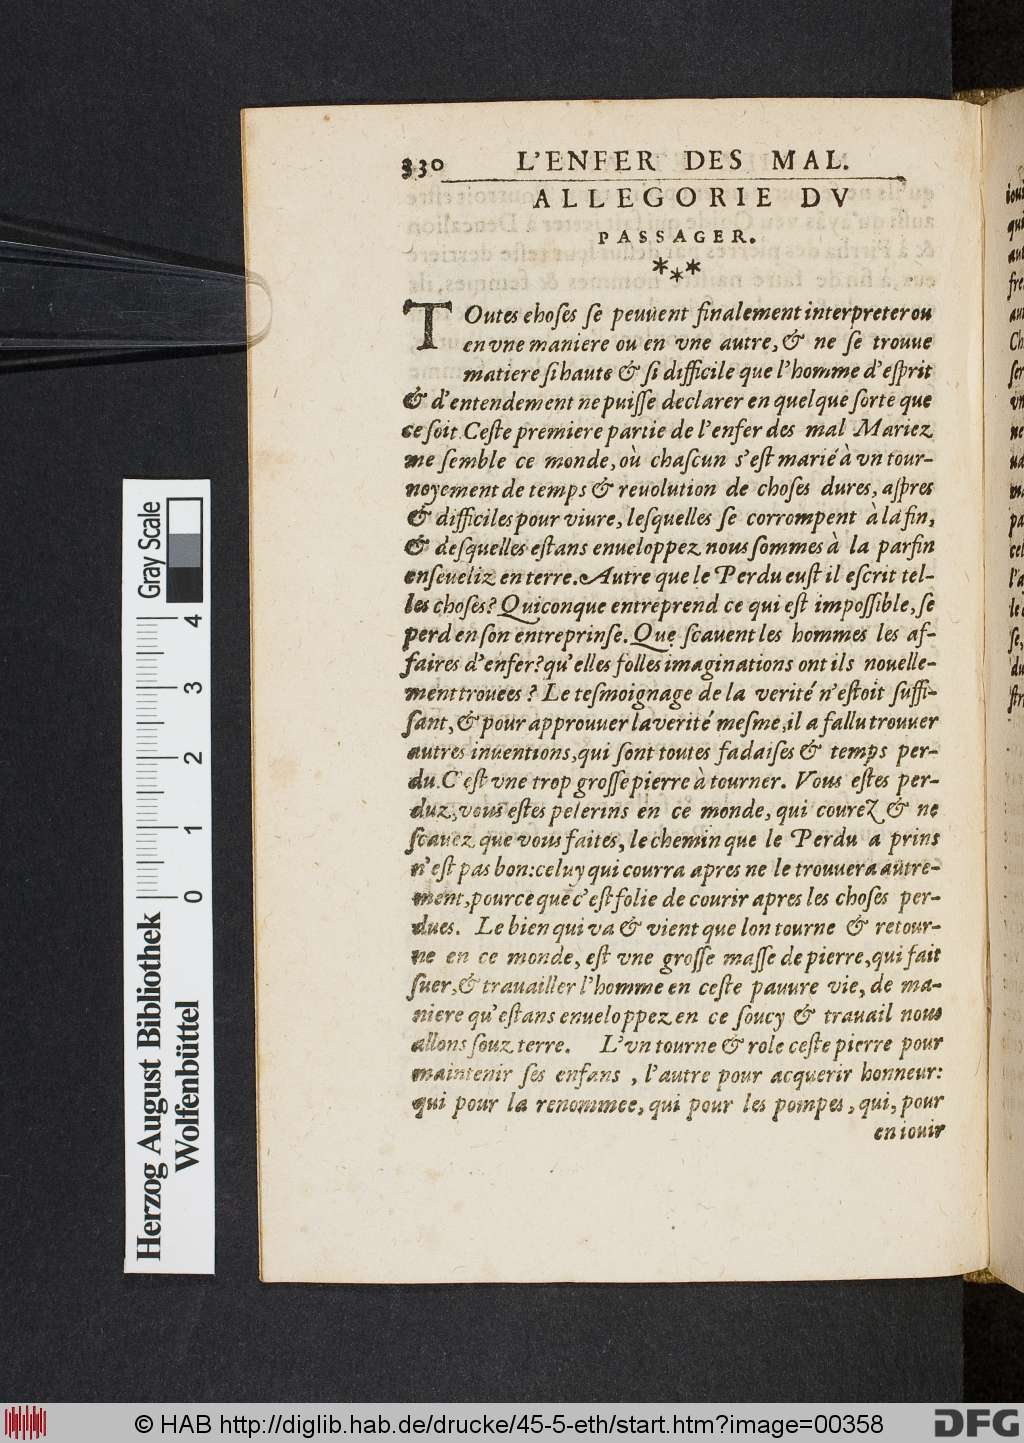 330 L'ENFER DES MAL.
ALLEGORIE DV
PASSAGER.
***
TOutes choſes ſe peuuent finalement interpreter ou
en vne maniere ou en vne autre, & ne ſe trouue
matiere ſi haute & ſi difficile que l'homme d'eſprit
& d'entendement ne puiſſe declarer en quelque ſorte que
ce ſoit. Ceſte premiere partie de l'enfer des mal Mariez
me ſemble ce monde, où chaſcun s'eſt marié à vn tour-
noyement de temps & reuolution de choſes dures, aſpres
& difficiles pour viure, leſquelles ſe corrompent à la fin,
& deſquelles eſtans enueloppez nous ſommes à la parfin
enſeueliz en terre. Autre que le Perdu euſt il eſcrit tel-
les choſes? Quiconque entreprend ce qui eſt impoſſible, ſe
perd en ſon entreprinſe. Que ſcauent les hommes les af-
faires d'enfer? qu'elles folles imaginations ont ils nouelle-
ment trouees? Le teſmoignage de la verité n'eſtoit ſuffi-
ſant, & pour approuuer la verité meſme, il a fallu trouuer
autres inuentions, qui ſont toutes fadaiſes & temps per-
du. C'eſt vne trop groſſe pierre à tourner. Vous eſtes per-
duz, vous eſtes pelerins en ce monde, qui courez & ne
ſcauez que vous faites, le chemin que le Perdu a prins
n'eſt pas bon: celuy qui courra apres ne le trouuera autre-
ment, pource que c'eſt folie de courir apres les choſes per-
dues. Le bien qui va & vient que lon tourne & retour-
ne en ce monde, eſt vne groſſe maſſe de pierre, qui fait
ſuer, & trauailler l'homme en ceſte pauure vie, de ma-
niere qu'eſtans enueloppez en ce ſoucy & trauail nous
allons ſouz terre. L'vn tourne & role ceſte pierre pour
maintenir ſes enfans, l'autre pour acquerir honneur:
qui pour la renommee, qui pour les pompes, qui, pour
en iouir
Herzog August Bibliothek
Wolfenbüttel
0 1 2 3 4
Gray Scale
© HAB http://diglib.hab.de/drucke/45-5-eth/start.htm?image=00358
DFG